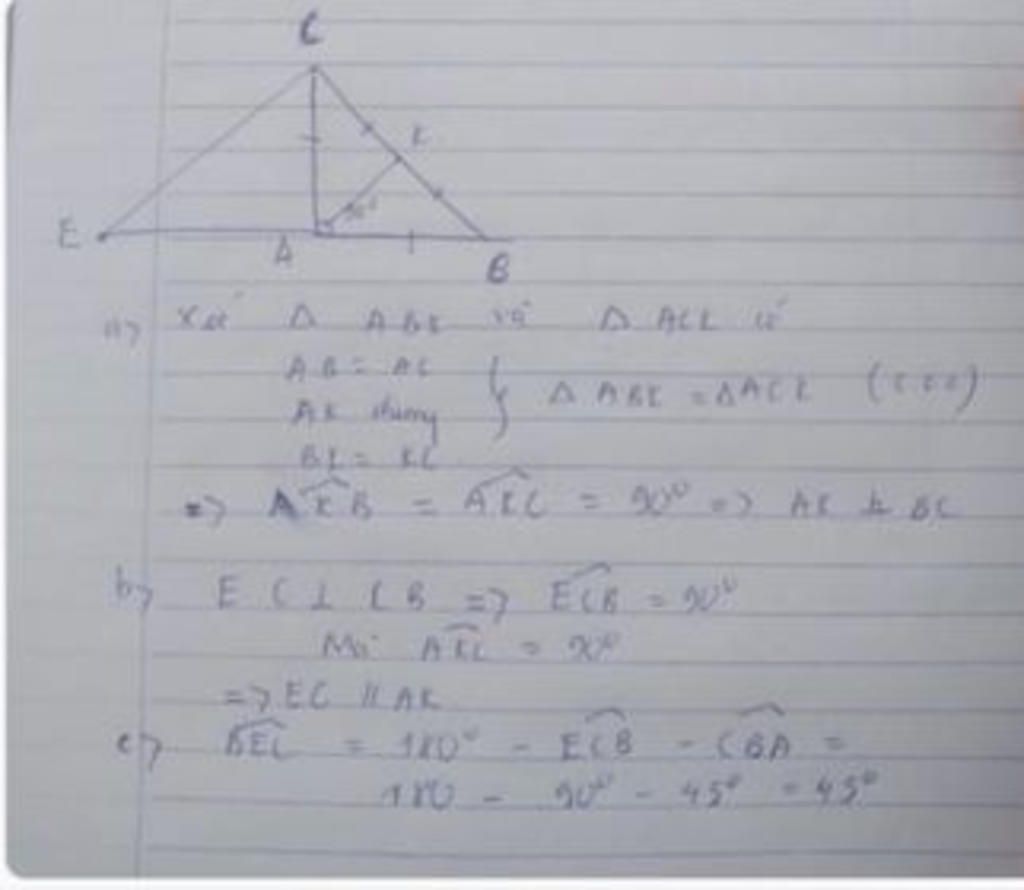 C
K
E
A
B
a) Xét Δ ABK và Δ ACK có
AB = AC
AK chung } Δ ABK = Δ ACK (c c c)
BK = KC
=> AKB = AKC = 90° => AK ⊥ BC
b) EC ⊥ CB => ECB = 90°
Mà AKC = 90°
=> EC // AK
c) BEC = 180° - ECB - CBA =
180 - 90° - 45° = 45°